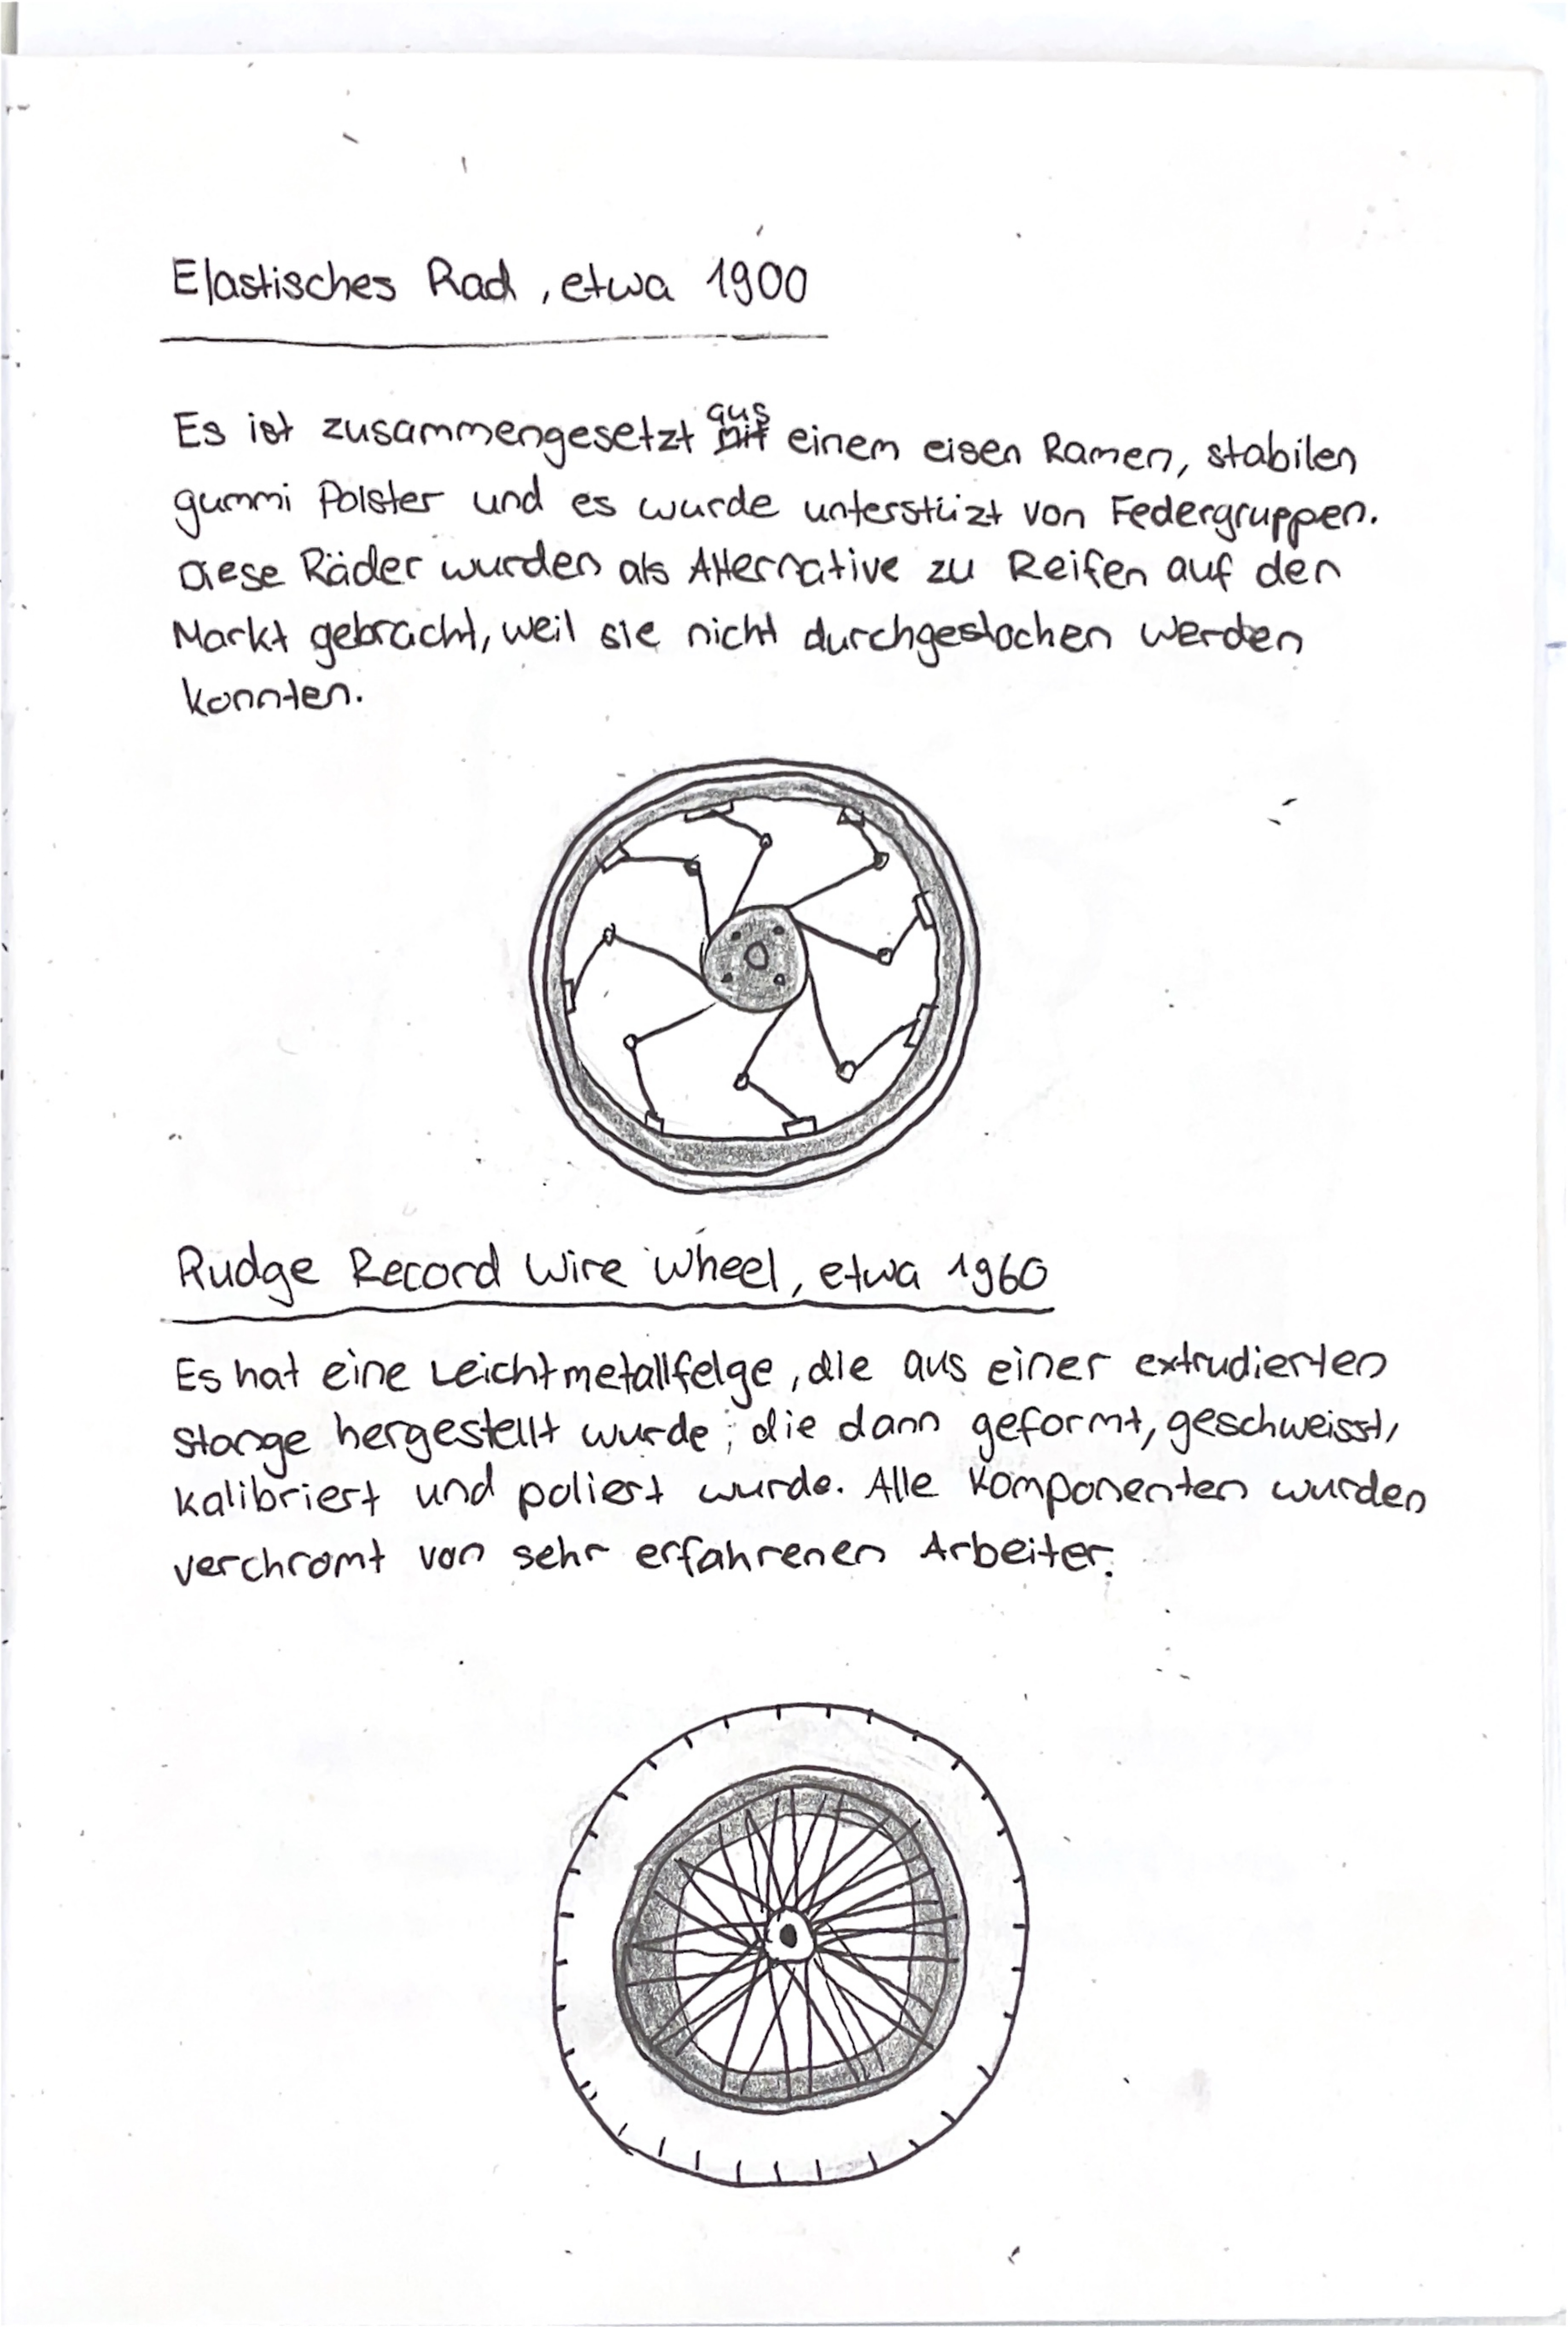 Elastisches Rad, etwa 1900
Es ist zusammengesetzt aus einem eisen Ramen, stabilen
gummi Polster und es wurde unterstüzt von Federgruppen.
Diese Räder wurden als Alternative zu Reifen auf den
Markt gebracht, weil sie nicht durchgestochen werden
konnten.
Rudge Record Wire Wheel, etwa 1960
Es hat eine Leichtmetallfelge, die aus einer extrudierten
Stange hergestellt wurde, die dann geformt, geschweisst,
kalibriert und poliert wurde. Alle Komponenten wurden
verchromt von sehr erfahrenen Arbeiter.